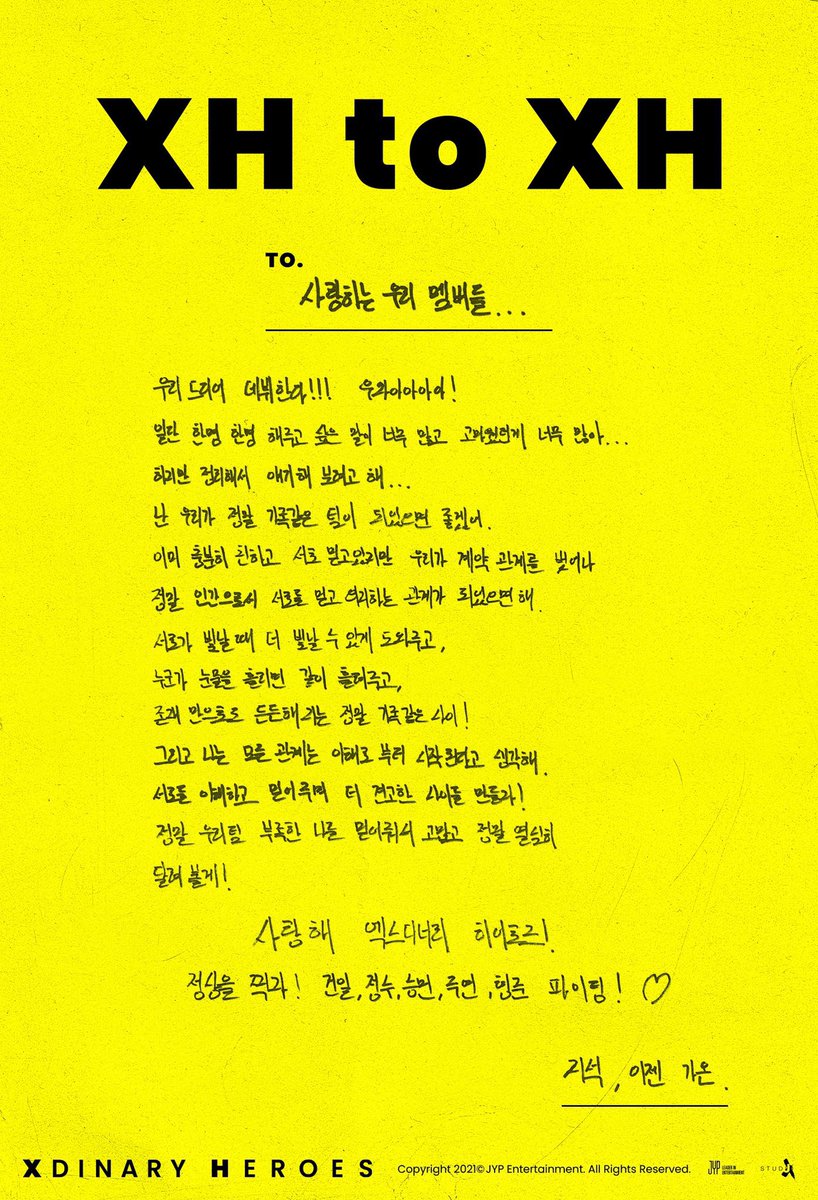 XH to XH
TO.
사랑하는 우리 멤버들...
우리 드디어 데뷔한다!!! 우와아아아!
일단 한명 한명 해주고 싶은 말이 너무 많고 고마웠던게 너무 많아...
하지만 정리해서 얘기해 보려고 해...
난 우리가 정말 가족같은 팀이 되었으면 좋겠어.
이미 충분히 친하고 서로 믿고있지만 우리가 계약 관계를 벗어나
정말 인간으로서 서로를 믿고 의지하는 관계가 되었으면 해.
서로가 빛날 때 더 빛날 수 있게 도와주고,
누군가 눈물을 흘리면 같이 흘려주고,
존재 만으로도 든든해지는 정말 가족같은 사이!
그리고 나는 모든 관계는 이해로 부터 시작된다고 생각해.
서로를 이해하고 믿어주며 더 견고한 사이를 만들자!
정말 우리팀 부족한 나를 믿어줘서 고맙고 정말 열심히
달려 볼게!
사랑해 엑스디너리 히어로즈!
정상을 찍자! 건일, 정수, 승민, 주연, 형준 파이팅! ♡
지석, 이젠 가온.
XDINARY HEROES
Copyright 2021© JYP Entertainment. All Rights Reserved.
JYP LEADER IN ENTERTAINMENT